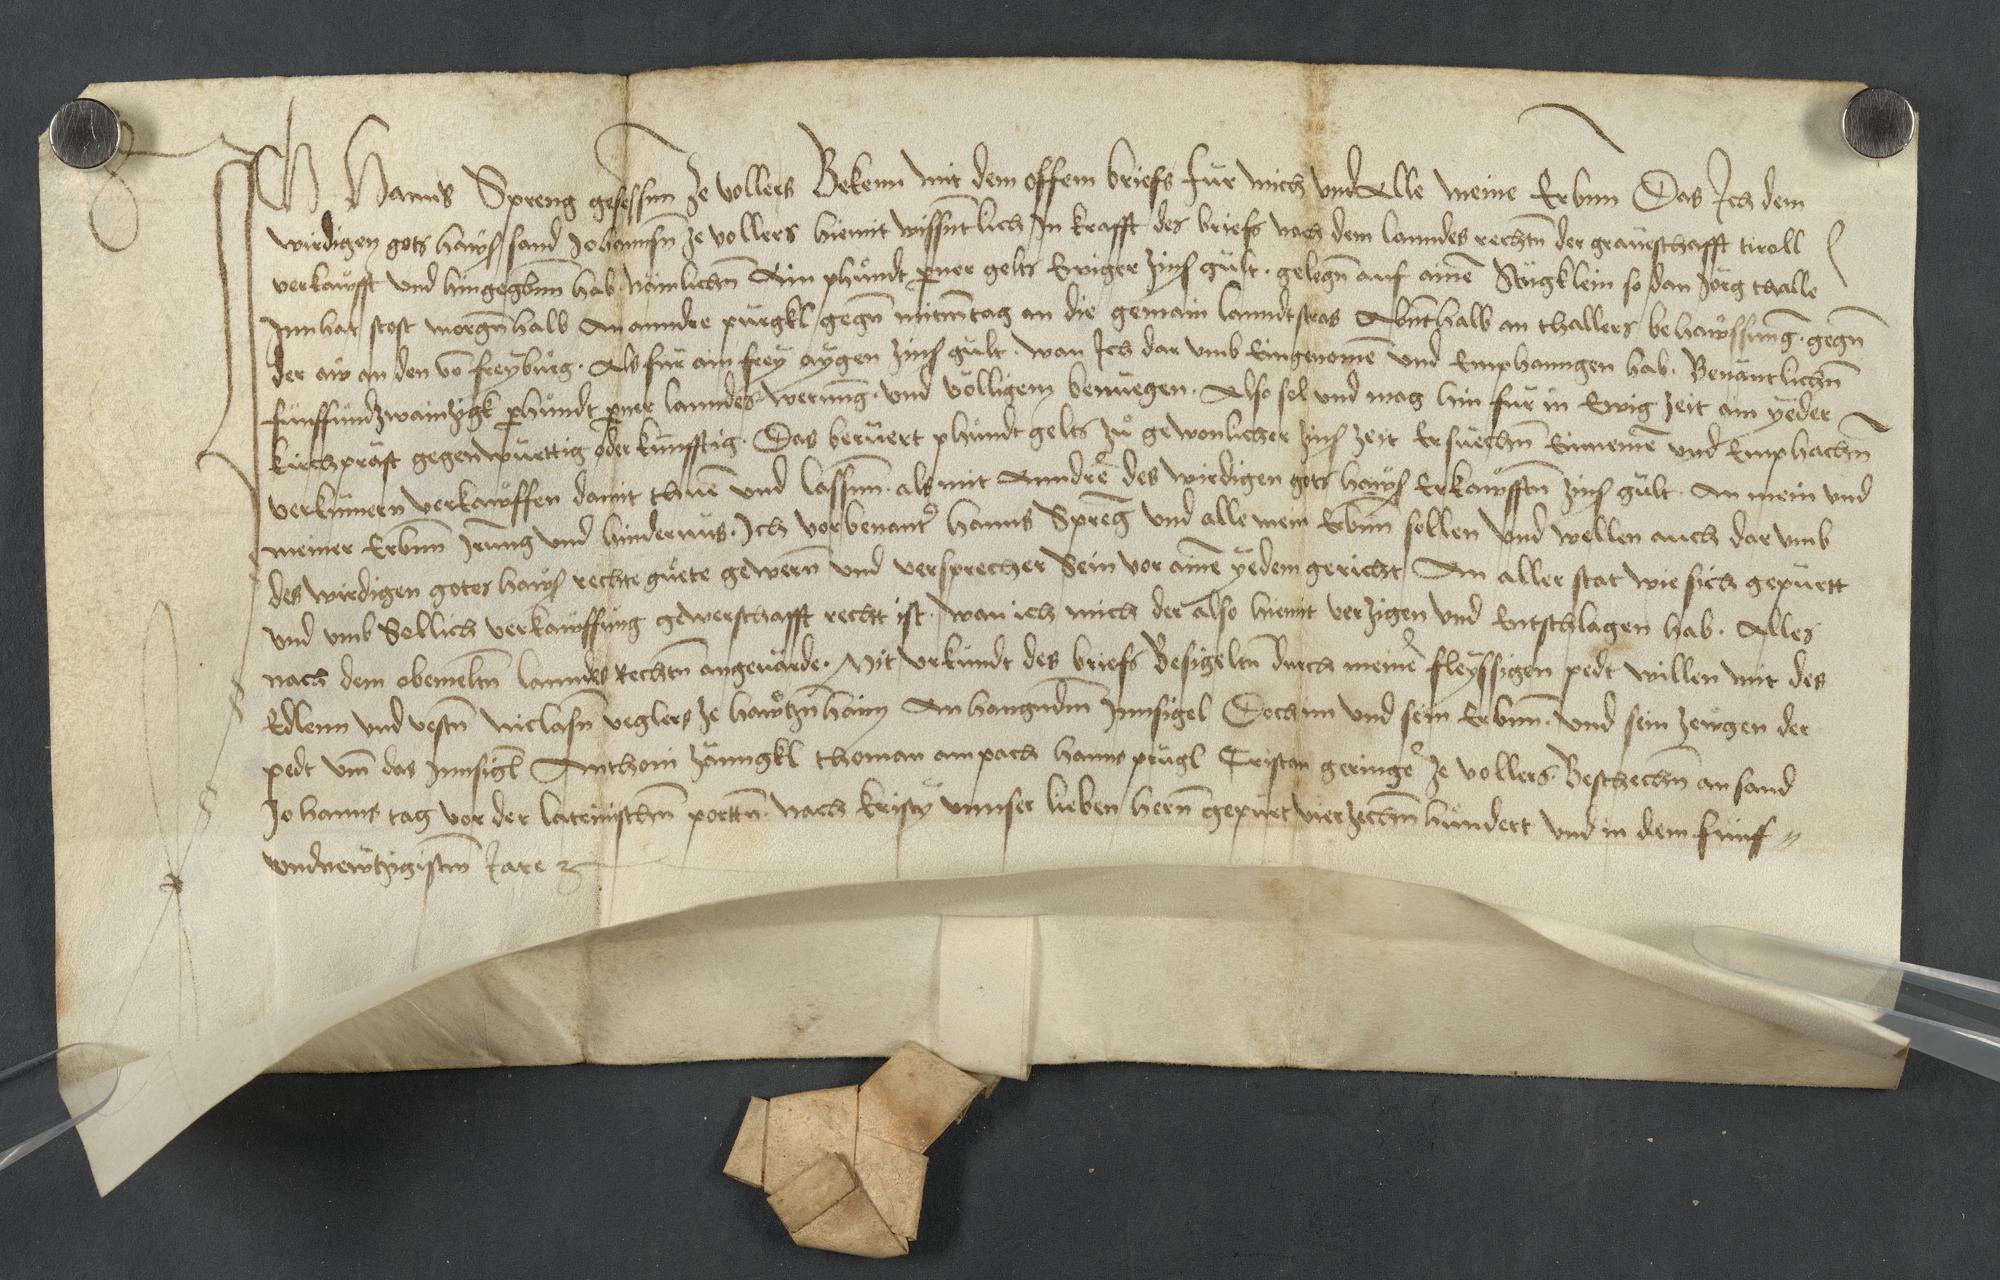 Ich Hanns Spreng gesessnn ze vollers Bekenn mit dem offem briefs fur mich und Alle meine Erbnn Das Ich dem
wirdigen gots hawß sand Johannsn ze vollers hiemit wissntlich In krafft des briefs nach dem lanndes rechtn der graueschafft tiroll
verkawfft und hingegebnn hab nämlichn Ain phundt perner gelts Ewiger zinß gült. gelegn auf ainem Stugklein so dan Jörg thalle
Innhat stost morgnhalb An annder purgkl gegn mitmtag an die gemain lanndtstras Abnthalb an thallers behawssung. gegn
der aw an den vo freyburg. Als fur ain frey aygen zinß gült. wan Ich dar umb Eingenomen und Emphanngen hab. Benäntlichn
funffundzwainzigk phundt perner lanndes werung. und völligem benuegen. Also sol und mag hin fur in Ewig zeit ain yeder
kirchpräst gegenwürttig oder kunfftig. Das beruert phundt gelts zu gewonlicher zinß zeit Ersuechn Einnemen und Emphachn
verkumern verkawffen damit thuen und lassnn. als mit Anndre des wirdigen gots hawß Erkawfftn zinß gült. An mein und
meiner Erbnn Irrung und hindernus. Ich vorbenanter hanns Spreng und alle mein Erbnn sollen und wellen auch dar umb
des wirdigen gotes hawß rechte guete gewern und versprecher Sein vor ainem yedem gericht An aller stat wie sich gepurtt
und umb Sollich verkawffung gewerschafft recht ist. wan ich mich der also hiemit verzigen und Entschlagen hab. Alles
nach dem obemeltn lanndes Rechtn angeuärde. Mit urkundt des briefs Besigeltn durch meiner fleyssigen pedt willen mit des
Edlenn und vestn niclasn veglers ze hawtznhaim An hangndm Innsigel Doch im und sein Erbnn. und sein zewgen der
pedt um das Innsigl Anthoni zänngkl thoman am pach hanns prugl Cristan geringer ze vollers. Beschechn an sand
Johanns tag vor der lateinischn porttn. nach kristy unnser lieben hern gepurt vierzechn hundert und in dem funf
undnewtzigistm Jare